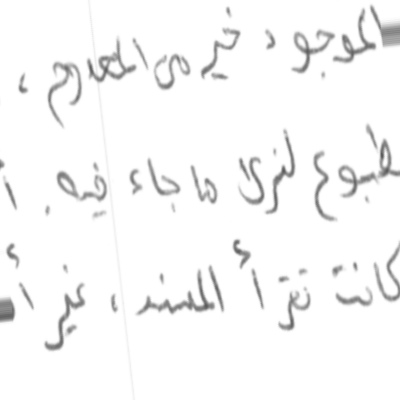 الموجود خير من المعدوم ،
طبوع لنرى ما جاء فيه. أ
كانت تقرأ المسند ، غير أ